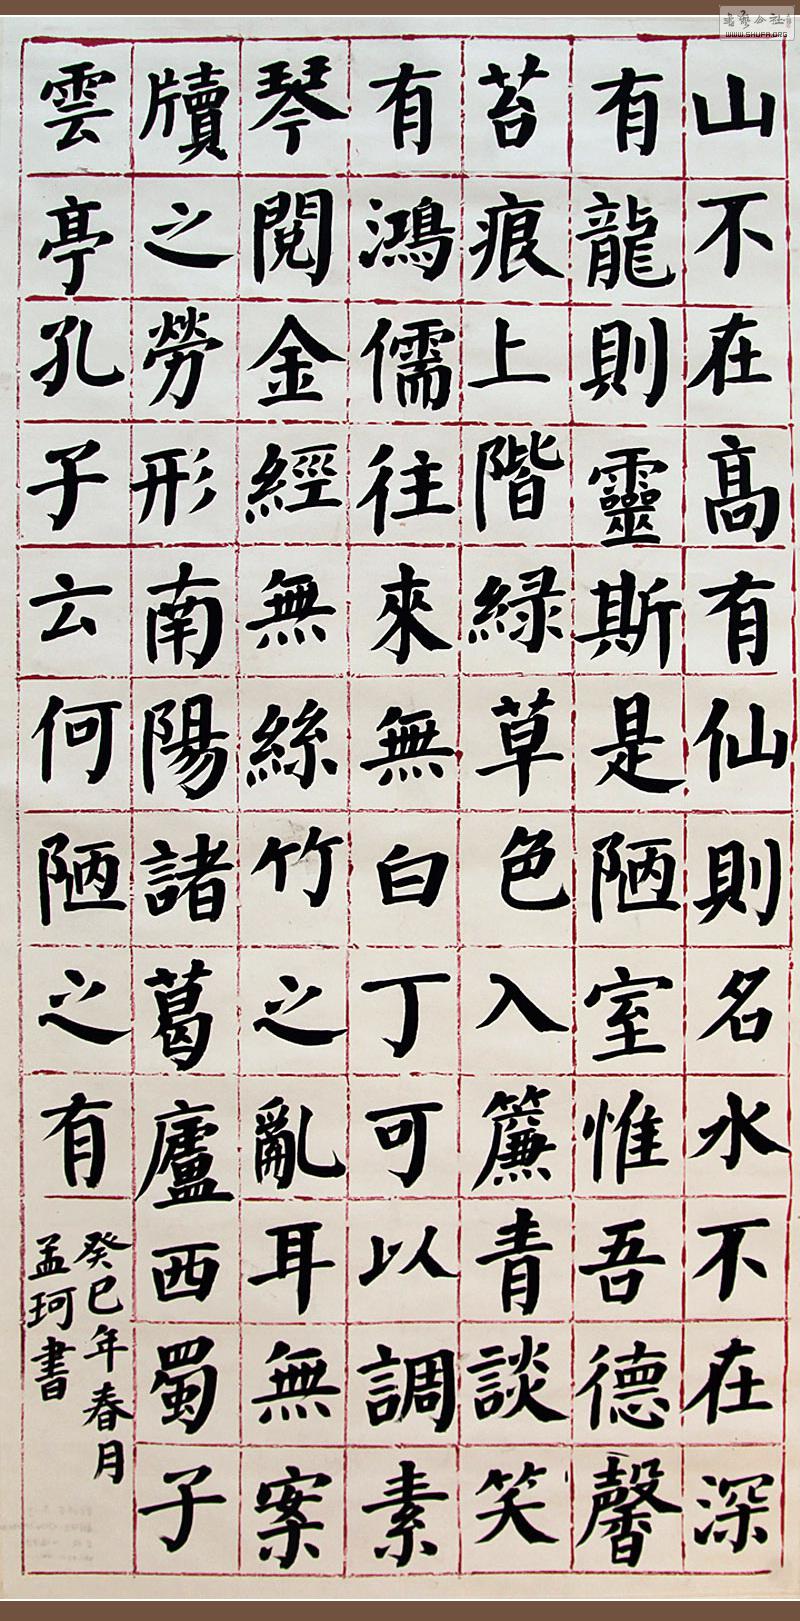 山不在高有仙則名水不在深
有龍則靈斯是陋室惟吾德馨
苔痕上階緑草色入簾青談笑
有鴻儒往來無白丁可以調素
琴閱金經無絲竹之亂耳無案
牘之勞形南陽諸葛廬西蜀子
雲亭孔子云何陋之有
癸巳年春月
孟珂書
书艺公社
WWW.SHUFA.ORG